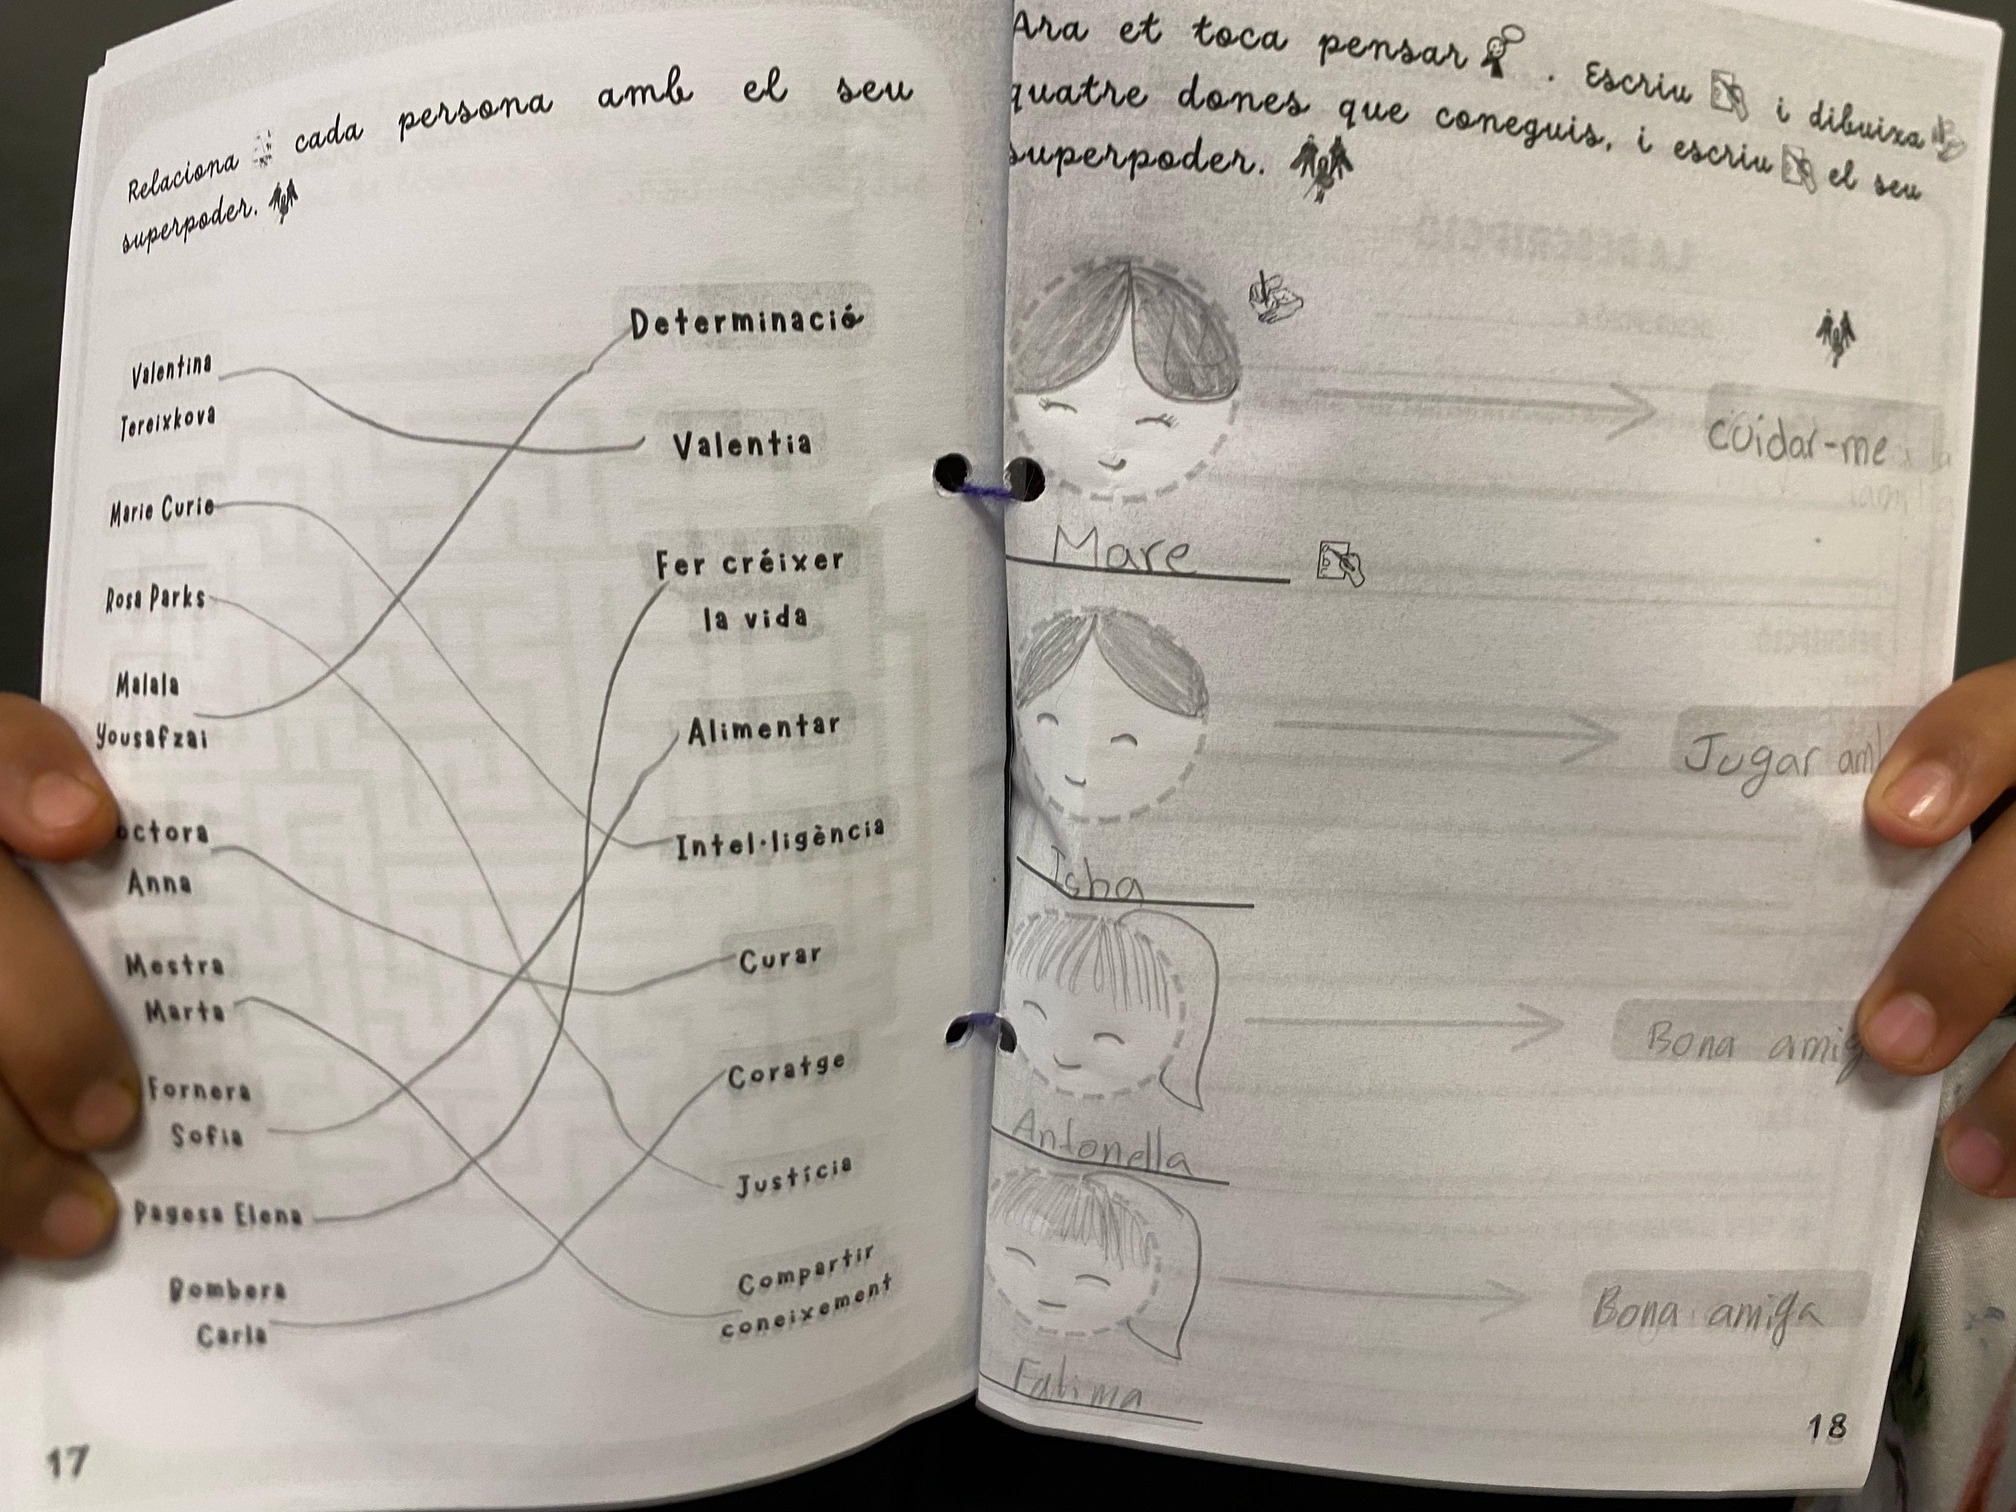 Relaciona cada persona amb el seu
superpoder.
Valentina
Tereixkova
Marie Curie
Rosa Parks
Malala
Yousafzai
octora
Anna
Mestra
Marta
Fornera
Sofia
Pagesa Elena
Bombera
Carla
Determinació
Valentia
Fer créixer
la vida
Alimentar
Intel·ligència
Curar
Coratge
Justícia
Compartir
coneixement
17
Ara et toca pensar . Escriu i dibuixa
quatre dones que coneguis, i escriu el seu
superpoder.
cuidar-me
Mare
Jugar am
Isha
Bona amig
Antonella
Bona amiga
Fatima
18